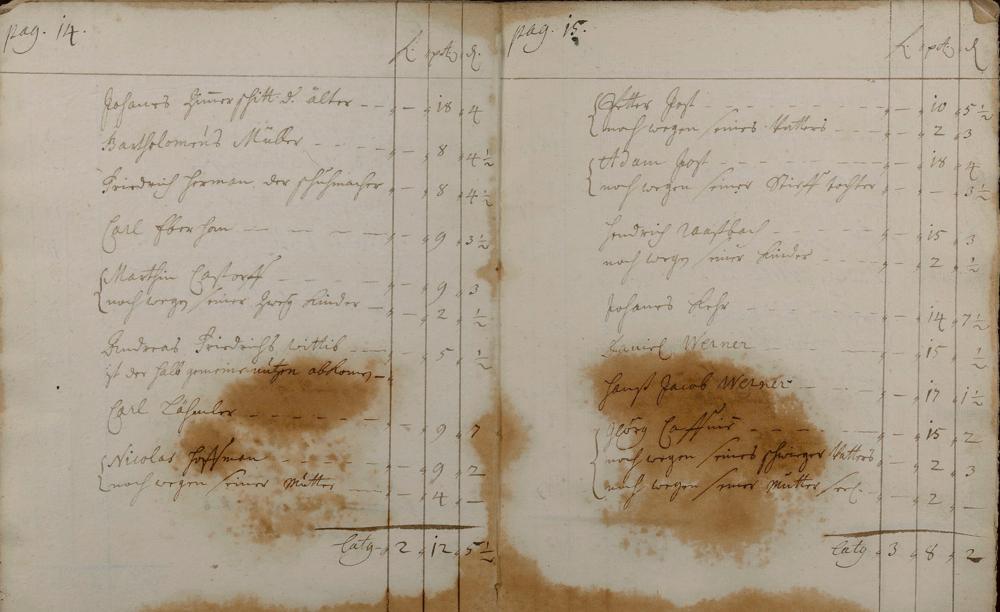 pag. 14.
Johanes Zimmerschitt d. älter — „ — „ 18 „ 4
Bartholomeus Müller — „ — „ 8 „ 4 ½
Friedrich Herman, der schuhmacher „ — „ 8 „ 4 ½
Carl Eberhan — „ — „ 9 „ 3 ½
Marthin Castorff — „ — „ 9 „ 3
noch wegen seiner Zweÿ Kinder — „ — „ 2 „ ½
Andreas Friedrichs wittib — „ — „ 5 „ ½
ist der halb gemeine nutzen
Carl — „ — „ 9 „ 7
Nicolas Hoffman — „ — „ 9 „ 2
noch wegen seiner Mutter — „ — „ 4 „ —
Latq „ 2 „ 12 „ 5 ½
pag. 15.
Petter Jost — „ — „ 10 „ 5 ½
noch wegen seines Vatters — „ — „ 2 „ 3
Adam Jost — „ — „ 18 „ 4
noch wegen seiner Stieff tochter „ — „ — „ 3 ½
Hendrich — „ — „ 15 „ 3
noch wegen seiner Kinder — „ — „ 2 „ ½
Johanes — „ — „ 14 „ 7 ½
Daniel Werner — „ — „ 15 „ ½
Hanß Jacob Werner — „ — „ 17 „ 1 ½
Geörg — „ — „ 15 „ 2
noch wegen seines schwieger Vatters „ — „ 2 „ 3
noch wegen seiner Mutter seel. „ — „ 2 „ —
Latq „ 3 „ 8 „ 2